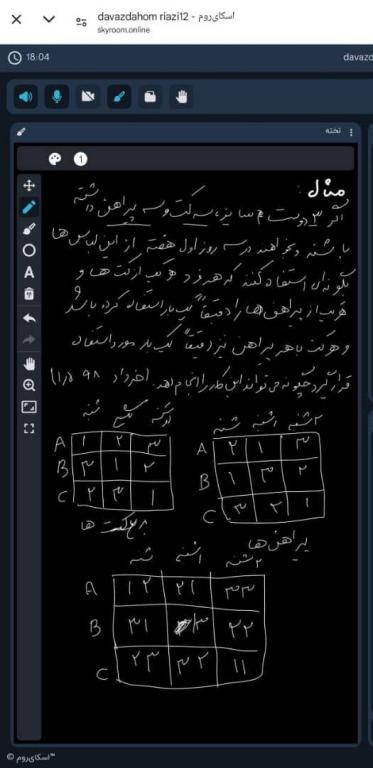 davazdahom riazi12 - اسکای‌روم
skyroom.online
18:04
davazd
تخته
1
مثال:
اگر ۳ دوست هم سایز، سه کت و سه پیراهن داشته
باشند و بخواهند در سه روز اول هفته از این لباس ها
بگونه ای استفاده کنند که هر فرد هر یک از کت ها و
هر یک از پیراهن ها را دقیقاً یک بار استفاده کرده باشد
و هر کت با هر پیراهن نیز دقیقاً یک بار مورد استفاده
قرار گیرد چگونه می تواند این کار را انجام دهد. (خرداد ۹۸
شنبه
A ۱ ۲ ۳
B ۳ ۱ ۲
C ۲ ۳ ۱
کت ها
شنبه ۱شنبه ۲شنبه
A ۲ ۱ ۳
B ۱ ۳ ۲
C ۳ ۲ ۱
پیراهن ها
شنبه ۱شنبه ۲شنبه
A ۱۲ ۲۱ ۳۳
B ۳۱ ۱۳ ۲۲
C ۲۳ ۳۲ ۱۱
© اسکای‌روم™